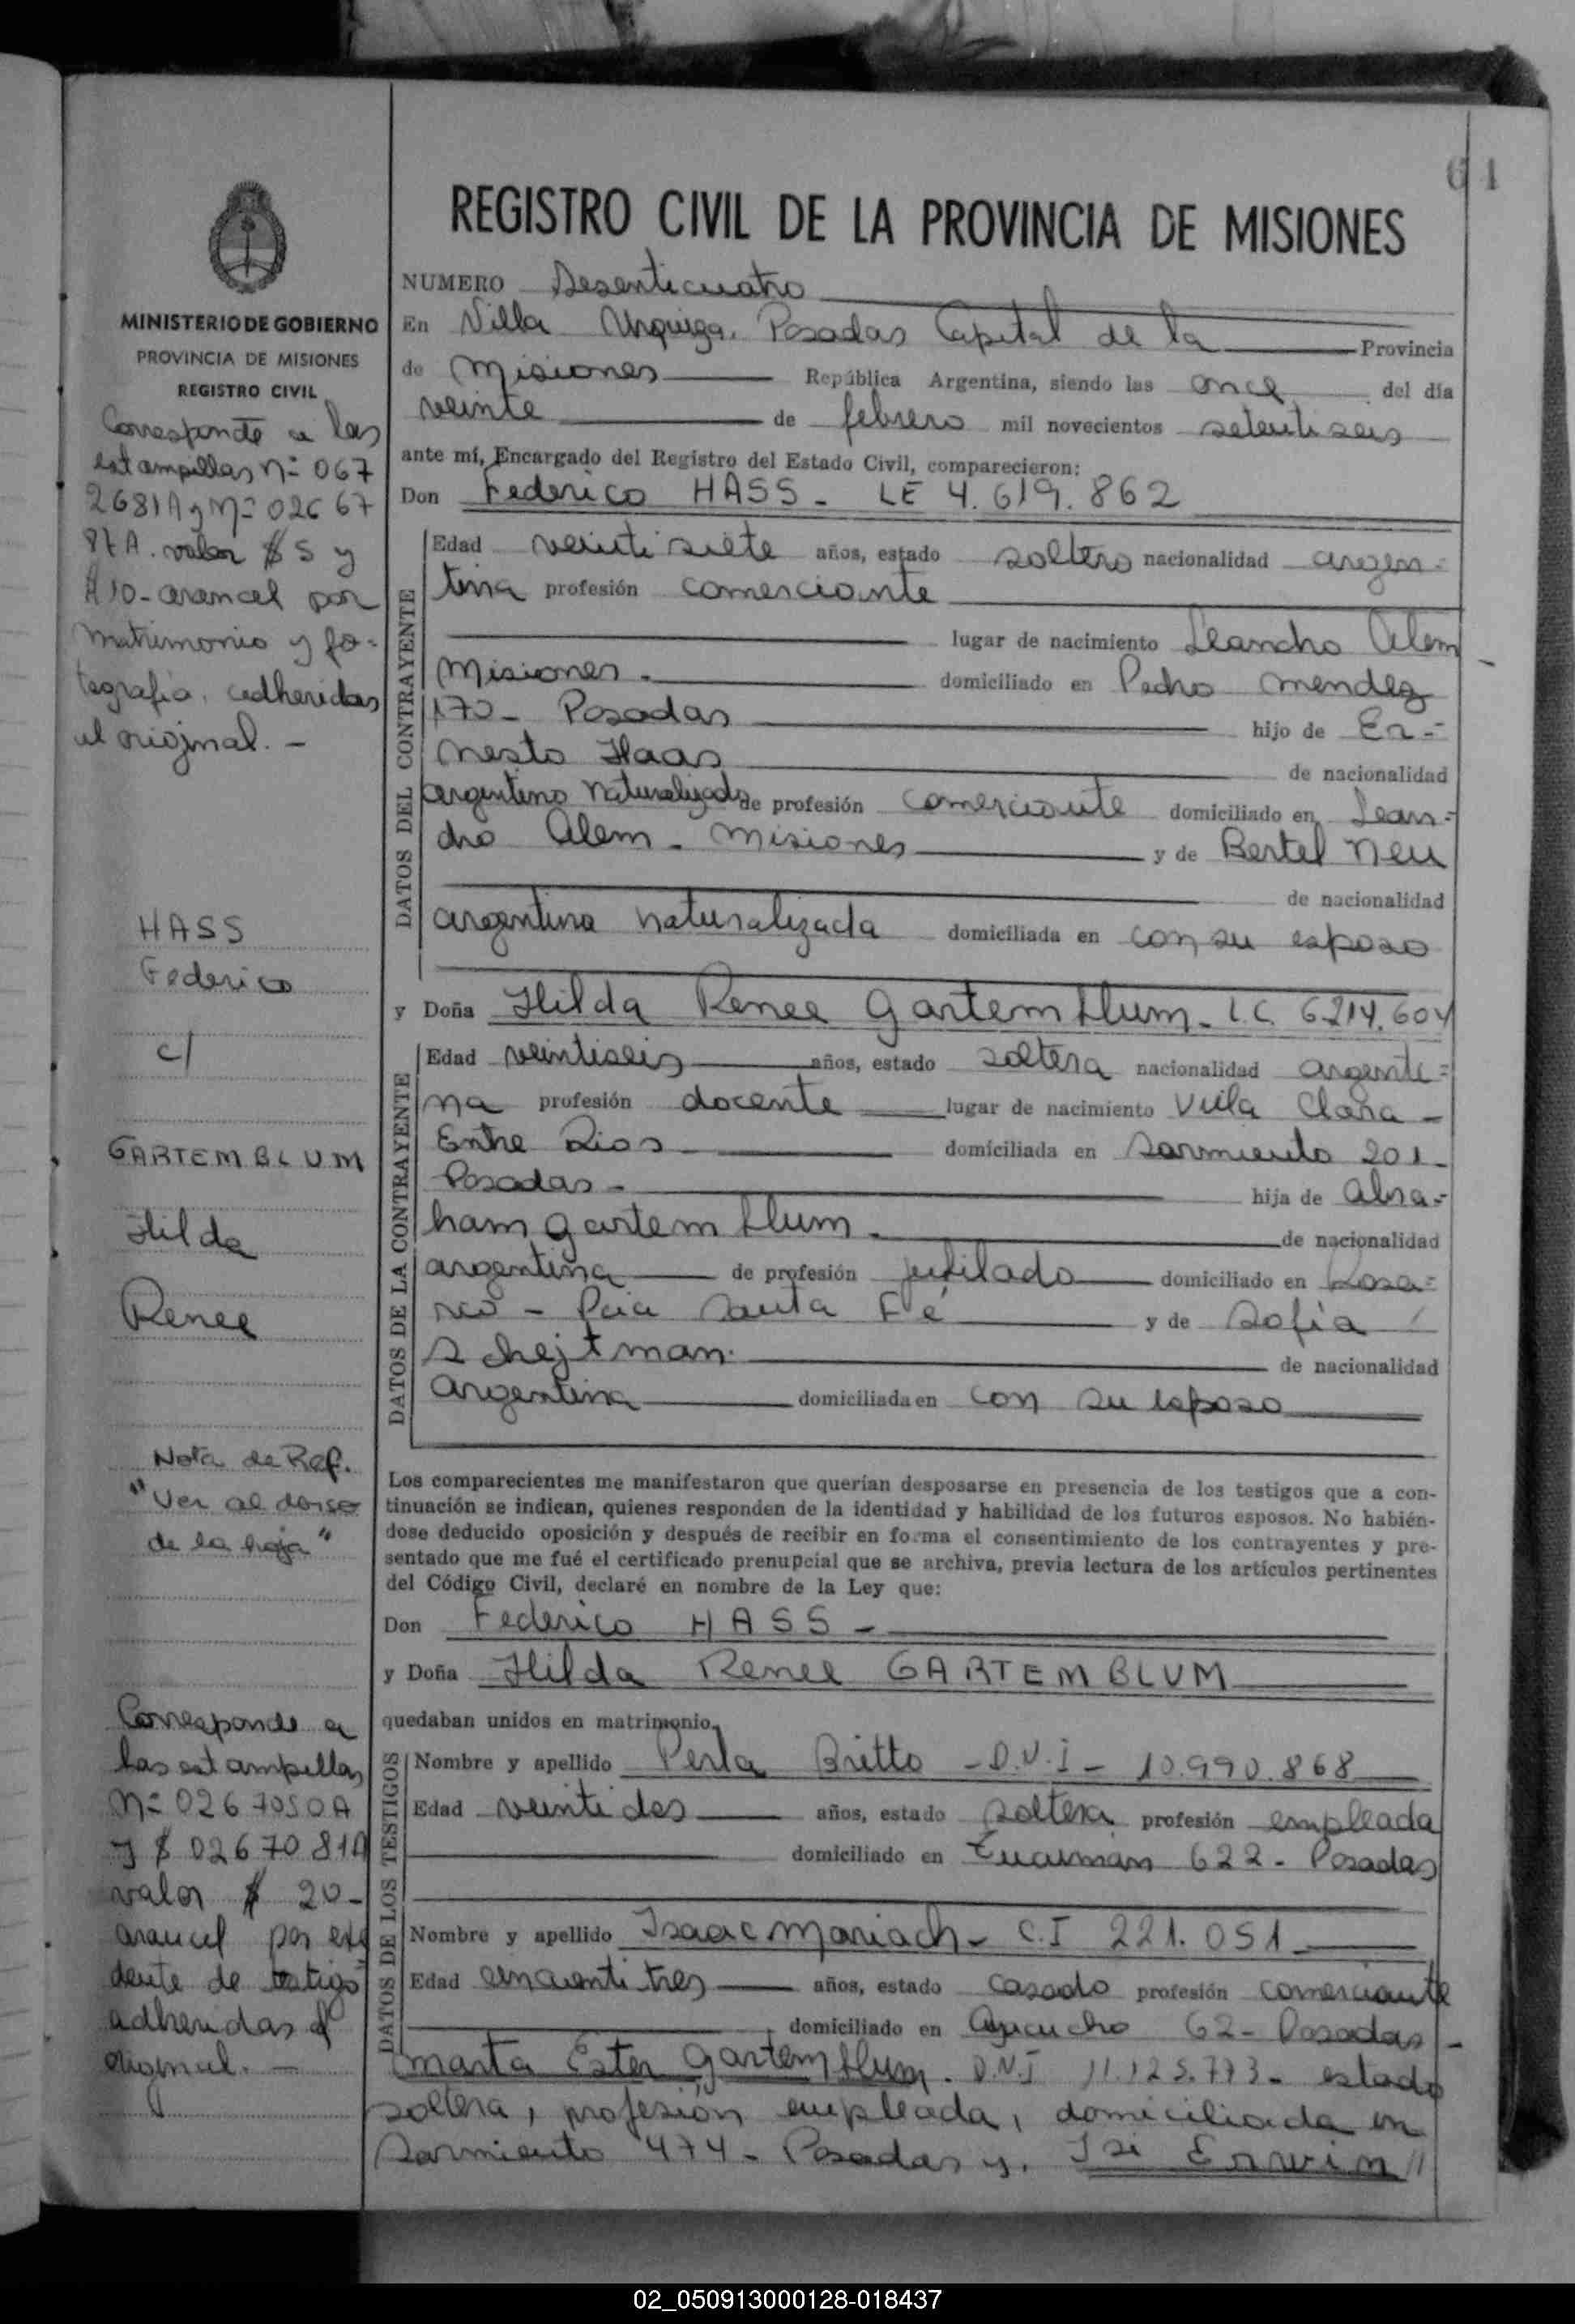 61
REGISTRO CIVIL DE LA PROVINCIA DE MISIONES
MINISTERIO DE GOBIERNO
PROVINCIA DE MISIONES
REGISTRO CIVIL
Corresponde a las
estampillas Nº 067
2681A y Nº 02667
87A. valor $ 5 y
$ 10- arancel por
matrimonio y fo-
tografia. adheridas
al original. -
HASS
Federico
c/
GARTEMBLUM
Hilda
Renee
Nota de Ref.
"Ver al dorso
de la hoja"
Corresponde a
las estampillas
Nº 0267050A
y $ 0267081A
valor $ 20-
arancel por exe
dente de testigo
adheridas al
original. -
NUMERO Sesenticuatro
En Villa Urquiza. Posadas Capital de la Provincia
de Misiones República Argentina, siendo las once del día
veinte de febrero mil novecientos setentiseis
ante mí, Encargado del Registro del Estado Civil, comparecieron:
Don Federico HASS - LE 4.619.862
DATOS DEL CONTRAYENTE
Edad veintisiete años, estado soltero nacionalidad argen=
tina profesión comerciante
lugar de nacimiento Leandro Alem
Misiones. domiciliado en Pedro Mendez
170- Posadas hijo de Er-=
nesto Haas de nacionalidad
argentino naturalizado de profesión comerciante domiciliado en Lean=
dro Alem - Misiones y de Bertel Neu
de nacionalidad
argentina naturalizada domiciliada en con su esposo
y Doña Hilda Renee Gartemblum - L.C. 6.214.604
DATOS DE LA CONTRAYENTE
Edad veintiseis años, estado soltera nacionalidad argenti=
na profesión docente lugar de nacimiento Villa Clara -
Entre Rios - domiciliada en Sarmiento 201-
Posadas - hija de Abra=
ham Gartemblum. de nacionalidad
argentina de profesión jubilado domiciliado en Rosa=
rio - Pcia Santa Fé y de Sofia
Schejtman. de nacionalidad
argentina domiciliada en con su esposo
Los comparecientes me manifestaron que querían desposarse en presencia de los testigos que a con-
tinuación se indican, quienes responden de la identidad y habilidad de los futuros esposos. No habién-
dose deducido oposición y después de recibir en forma el consentimiento de los contrayentes y pre-
sentado que me fué el certificado prenupcial que se archiva, previa lectura de los artículos pertinentes
del Código Civil, declaré en nombre de la Ley que:
Don Federico HASS -
y Doña Hilda Renee GARTEMBLUM
quedaban unidos en matrimonio.
DATOS DE LOS TESTIGOS
Nombre y apellido Perla Britto - D.N.I - 10.990.868
Edad veintidos años, estado soltera profesión empleada
domiciliado en Tucuman 622 - Posadas
Nombre y apellido Isaac Mariach - C.I 221.051
Edad cincuentitres años, estado casado profesión comerciante
domiciliado en Ayacucho 62 - Posadas -
Marta Ester Gartemblum. D.N.I 11.125.773 - estado
soltera, profesión empleada, domiciliada en
Sarmiento 474 - Posadas y, Isi Erwin //
02_050913000128-018437